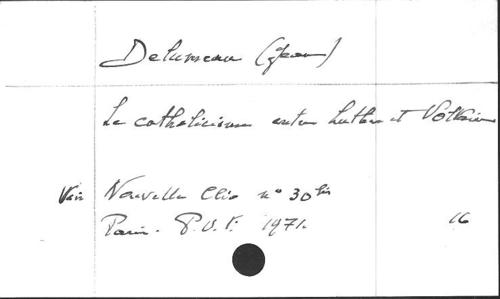 Delumeau (Jean)
Le catholicisme entre Luther et Voltaire
Voir Nouvelle Clio n° 30 bis
Paris. P.U.F. 1971. 16